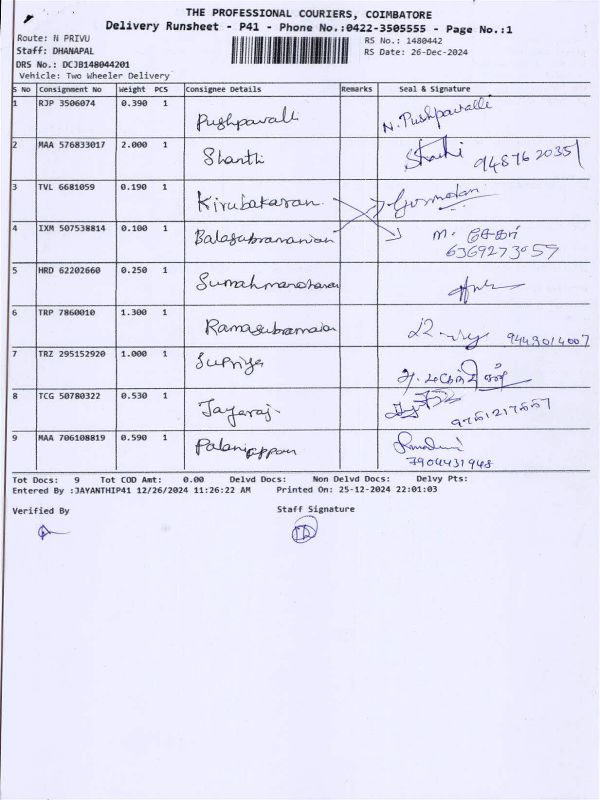 THE PROFESSIONAL COURIERS, COIMBATORE
Delivery Runsheet - P41 - Phone No.:0422-3505555 - Page No.:1
Route: N PRIVU
RS No.: 1480442
Staff: DHANAPAL
RS Date: 26-Dec-2024
DRS No.: DCJB148044201
Vehicle: Two Wheeler Delivery
S No Consignment No Weight PCS Consignee Details Remarks Seal & Signature
1 RJP 3506074 0.390 1 Pushpavalli N. Pushpavalli
2 MAA 576833017 2.000 1 Shanthi Shanthi 9487620351
3 TVL 6681059 0.190 1 Kirubakaran
4 IXM 507538814 0.100 1 Balasubramanian ம. சேகர்
6369273059
5 HRD 62202660 0.250 1 Sumahmanoharan
6 TRP 7860010 1.300 1 Ramasubramaian 9449014007
7 TRZ 295152920 1.000 1 Supriya
8 TCG 50780322 0.530 1 Jayaraj.
9 MAA 706108819 0.590 1 Palaniappan
7904431948
Tot Docs: 9 Tot COD Amt: 0.00 Delvd Docs: Non Delvd Docs: Delvy Pts:
Entered By :JAYANTHIP41 12/26/2024 11:26:22 AM Printed On: 25-12-2024 22:01:03
Verified By Staff Signature